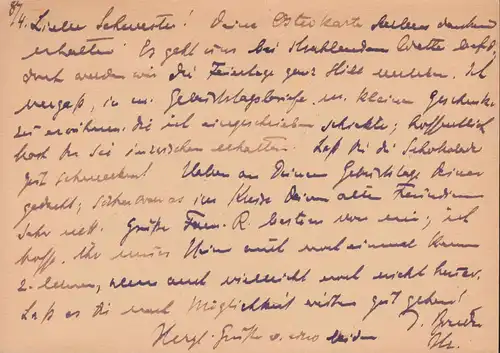 8/4. Liebe Schwester! Deine Osterkarte dankend
erhalten. Es geht uns bei strahlendem Wetter
doch werden wir die Feiertage ganz still Ich
vergaß, in m. Geburtstagsbriefe m. kleinen Geschenke
zu erwähnen, die ich eingeschrieben schickte; hoffentlich
hast Du sie inzwischen erhalten. Laß Dir die Schokolade
gut schmecken! Haben an Deinem Geburtstage Deiner
gedacht; war es im Kreise Deiner alten Freundinnen
sehr nett. Grüße Fam. R. bestens von mir; ich
hoffe, Ihr Heim auch noch einmal kennen
z. lernen, wenn auch vielleicht noch nicht heuer.
Laß es Dir nach Möglichkeit weiter gut gehen!
Herzl. Grüße v. uns beiden
D. Bruder